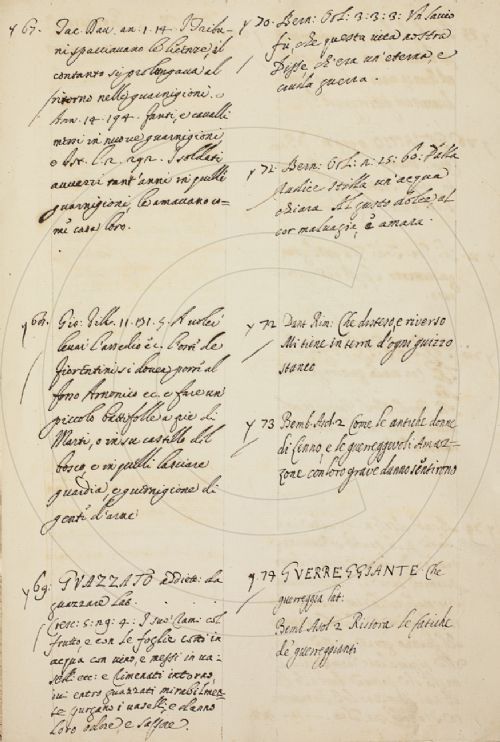 67. Tac. Dav. an. 1. 14. I Tribu-
ni spacciavano le licenze, il
contante si prolungava al
ritorno nelle guarnigioni.
Ann. 14. 194. fanti, e cavalli
messi in nuove guarnigioni
e Ist. l. 2. 292. I soldati
avvezzi tant'anni in quelli
guarnigioni, le amavano co-
me casa loro.
68. Gio: Vill. 11. 131. 5. A voler
levar l'assedio ec. l'oste de
Fiorentini si dovea porre al
fosso Arnonico ec. e fare un
piccolo battifolle a piè di
Marti, o in su castello del
bosco, e in quelli lasciare
guardia, e guernigione di
gente d'arme
69. GUAZZATO addiett: da
guazzare lat.
Cresc: 5: 19: 4: I suoi rami col
frutto, e con le foglie cotti in
acqua con vino, e messi in va-
etc: e rimenati intorno,
ivi entro guazzati mirabilmen-
te purgano i vaselli, e danno
loro odore, e sapore.
70. Bern: Orl: 3: 3: 3: Un savio
fù, che questa vita nostra
Disse, ch'era un'eterna, e
guerra.
71. Bern: Orl: 2: 25: 60: Dalla
radice stilla un'acqua
chiara Al gusto dolce, al
cor malvagia, è amara.
72 Dant Rim: Che disteso, e riverso
Mi tiene in terra d'ogni guizzo
stanco
73 Bemb. Asol. 2 Come le antiche donne
di Lenno e le guerreggevoli Amaz-
zone con loro grave danno sentirono
74 GUERREGGIANTE Che
guerreggia lat:
Bemb. Asol. 2 Ristora le fatiche
de guerreggianti